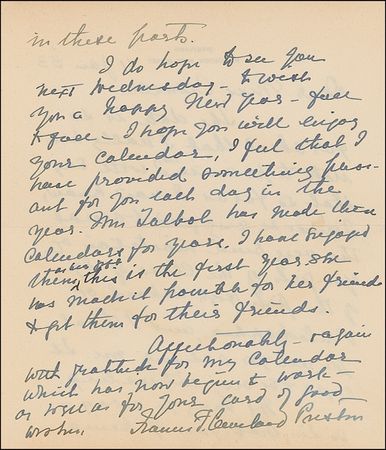 in these parts.
I do hope to see you
next Wednesday - to wish
you a happy New Year - face
to face - I hope you will enjoy
your calendar, I feel that I
have provided something pleas-
ant for you each day in the
year. Mrs Talbot has made these
calendars for years. I have enjoyed
them, this is the first year she
has made it possible for her friends
to get them for their friends.
Affectionately - again
with gratitude for my calendar
which has now begun to work -
as well as for your card of good
wishes. Frances F. Cleveland Preston